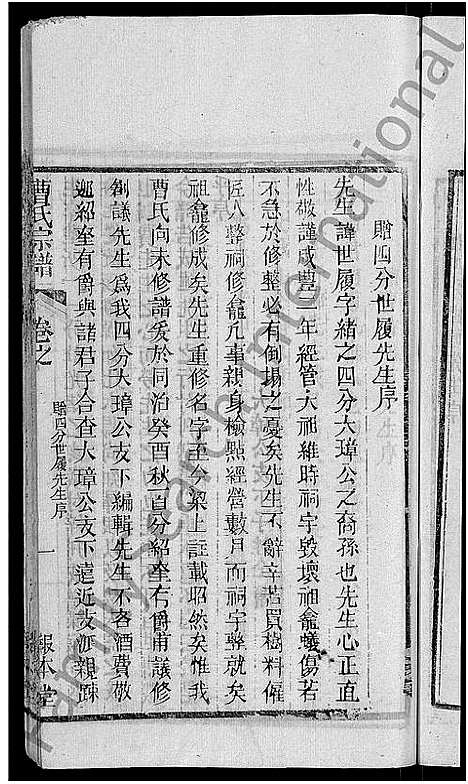 贈四分世履先生序
先生諱世履字緒之四分大璋公之裔孫也先生心正直
性敬謹咸豐二年經管大祖維時祠宇毀壞祖龕蟻傷若
不急於修整必有倒塲之憂矣先生不辭辛苦買樹料僱
匠人整祠修龕凡事親身檢點經營數月而祠宇整就矣
祖龕修成矣先生重修名字至今梁上註載昭然矣惟我
曹氏向未修譜爰於同治癸酉秋一百分紹奎有爵甫議修
創議先生爲我四分大璋公支下編輯先生不吝酒費敬
邀紹奎有爵與諸君子合查大璋公支下遠近支派親疎
曹氏宗譜
卷之
贈四分世履先生序
一
報本堂
Family Search International